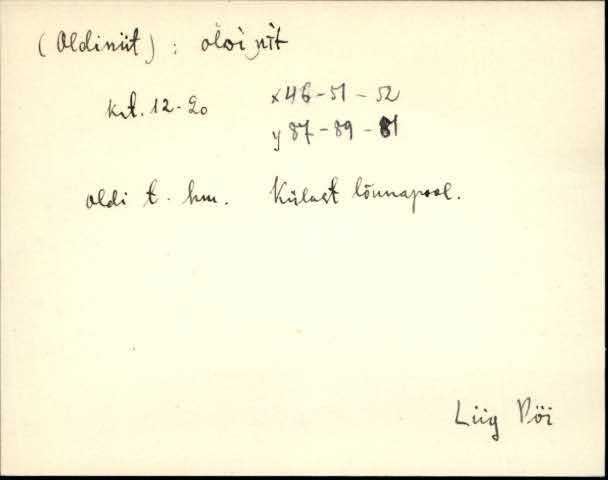 (Oldiniit) : olʋi nìt
krt. 12-20 x 46-51-52
y 87-89-81
oldi t. hm. Külast lõunapool.
Liig Pöi